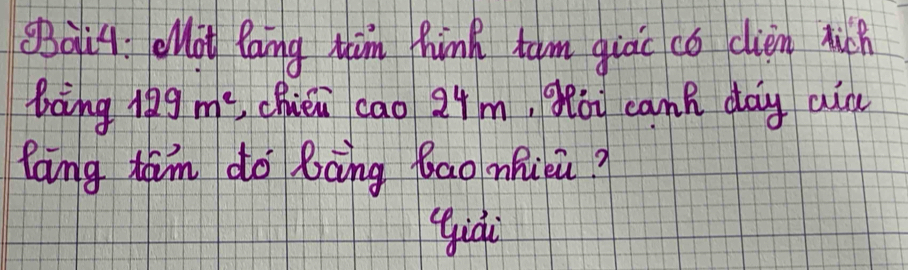 Bài 4: Một lăng tấm hình tam giác có diện tích
bằng 129 m², chiều cao 24 m, Hỏi cạnh đáy của
lăng tấm đó bằng bao nhiêu?
Giải